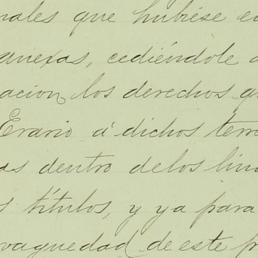 nales que hubiese en
anexas, cediéndole a
acion, los derechos q
Erario á dichos terr
as dentro delos lin
s títulos, y ya para
vaguedad de este p